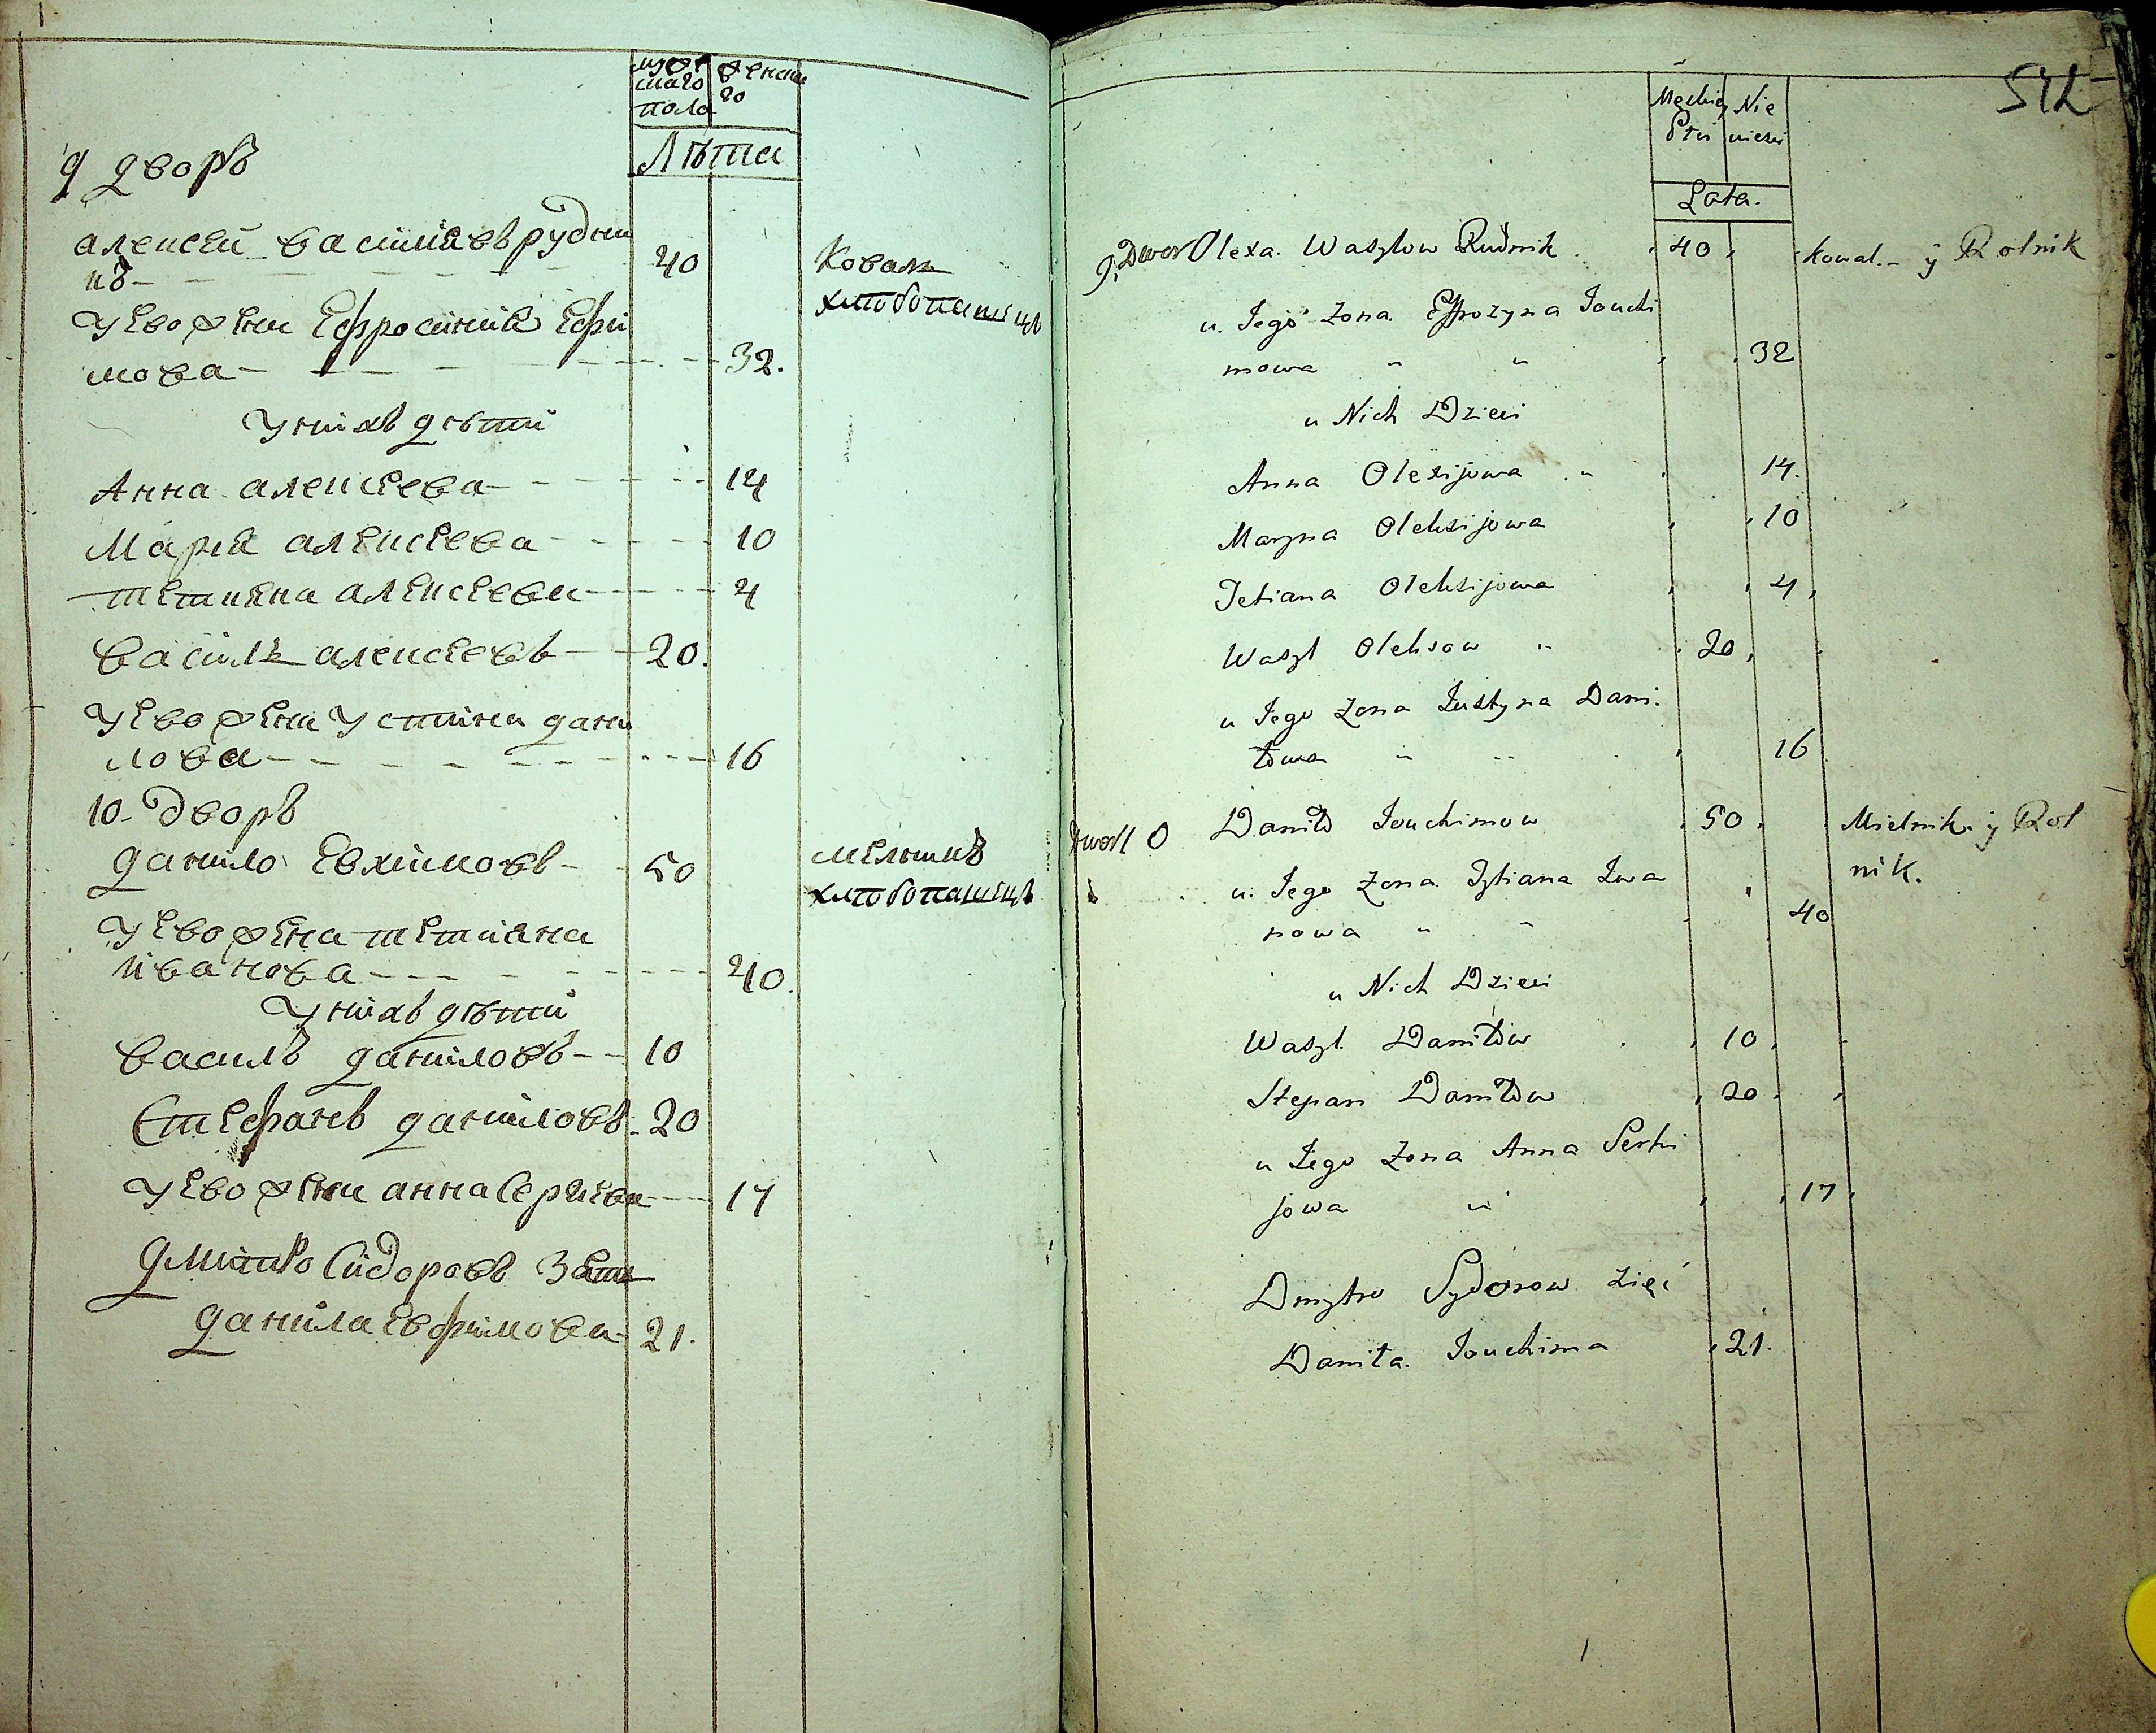 мужескаго пола
женскаго
Лѣта
9 дворъ
алексей василіевъ рудни
къ 40 Коваль
хлѣбопашецъ
у ево жена Ефросиния Ефи
мова 32.
у нихъ дѣти
Анна алексеева 14
Мария алексеева 10
тетияна алексеева 4
василь алексеевъ 20.
у ево жена устина дани
лова 16
10 дворъ
данило Евхимовъ 50 мельникъ
хлѣбопашецъ
у ево жена тетияна
иванова 40.
у нихъ дѣти
василъ даниловъ 10
Стефанъ даниловъ 20
у ево жена анна Сергиева 17
дмитро Сидоровъ Зять
данила Евфимова 21.
512
Męskiej Płci
Nie wiesci
Lata.
9, Dwor Olexa Wasylow Rudnik 40 Kowal - ÿ Rolnik
u Jego Zona Effrozyna Jouchi
mowa 32
u Nich Dzieci
Anna Olexijowa 14.
Maryna Oleksijowa 10
Tetiana Oleksijowa 4
Wasyl Oleksow 20
u Jego Zona Justyna Dani
łowa 16
Dwor 10 Daniło Jouchimow 50 Mielnik ÿ Rol
nik.
u Jego Zona Tytiana Iwa
nowa 40
u Nich Dzieci
Wasyl Daniłow 10
Stepan Daniłow 20
u Jego Zona Anna Serhi
jowa 17
Dmytro Sydorow Zięć
Daniła Jouchima 21.